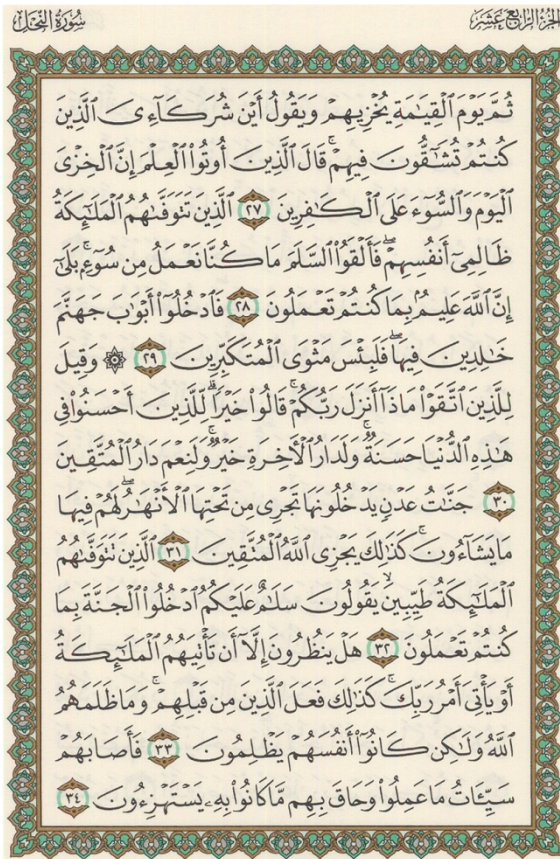 الجزء الرابع عشر سورة النحل
ثُمَّ يَوْمَ ٱلْقِيَـٰمَةِ يُخْزِيهِمْ وَيَقُولُ أَيْنَ شُرَكَآءِىَ ٱلَّذِينَ
كُنتُمْ تُشَـٰٓقُّونَ فِيهِمْ ۚ قَالَ ٱلَّذِينَ أُوتُوا۟ ٱلْعِلْمَ إِنَّ ٱلْخِزْىَ
ٱلْيَوْمَ وَٱلسُّوٓءَ عَلَى ٱلْكَـٰفِرِينَ ٢٧ ٱلَّذِينَ تَتَوَفَّىٰهُمُ ٱلْمَلَـٰٓئِكَةُ
ظَالِمِىٓ أَنفُسِهِمْ ۖ فَأَلْقَوُا۟ ٱلسَّلَمَ مَا كُنَّا نَعْمَلُ مِن سُوٓءٍۭ ۚ بَلَىٰٓ
إِنَّ ٱللَّهَ عَلِيمٌۢ بِمَا كُنتُمْ تَعْمَلُونَ ٢٨ فَٱدْخُلُوٓا۟ أَبْوَٰبَ جَهَنَّمَ
خَـٰلِدِينَ فِيهَا ۖ فَلَبِئْسَ مَثْوَى ٱلْمُتَكَبِّرِينَ ٢٩ ۞ وَقِيلَ
لِلَّذِينَ ٱتَّقَوْا۟ مَاذَآ أَنزَلَ رَبُّكُمْ ۚ قَالُوا۟ خَيْرًا ۗ لِّلَّذِينَ أَحْسَنُوا۟ فِى
هَـٰذِهِ ٱلدُّنْيَا حَسَنَةٌ ۚ وَلَدَارُ ٱلْـَٔاخِرَةِ خَيْرٌ ۚ وَلَنِعْمَ دَارُ ٱلْمُتَّقِينَ
٣٠ جَنَّـٰتُ عَدْنٍ يَدْخُلُونَهَا تَجْرِى مِن تَحْتِهَا ٱلْأَنْهَـٰرُ ۖ لَهُمْ فِيهَا
مَا يَشَآءُونَ ۚ كَذَٰلِكَ يَجْزِى ٱللَّهُ ٱلْمُتَّقِينَ ٣١ ٱلَّذِينَ تَتَوَفَّىٰهُمُ
ٱلْمَلَـٰٓئِكَةُ طَيِّبِينَ ۙ يَقُولُونَ سَلَـٰمٌ عَلَيْكُمُ ٱدْخُلُوا۟ ٱلْجَنَّةَ بِمَا
كُنتُمْ تَعْمَلُونَ ٣٢ هَلْ يَنظُرُونَ إِلَّآ أَن تَأْتِيَهُمُ ٱلْمَلَـٰٓئِكَةُ
أَوْ يَأْتِىَ أَمْرُ رَبِّكَ ۚ كَذَٰلِكَ فَعَلَ ٱلَّذِينَ مِن قَبْلِهِمْ ۚ وَمَا ظَلَمَهُمُ
ٱللَّهُ وَلَـٰكِن كَانُوٓا۟ أَنفُسَهُمْ يَظْلِمُونَ ٣٣ فَأَصَابَهُمْ
سَيِّـَٔاتُ مَا عَمِلُوا۟ وَحَاقَ بِهِم مَّا كَانُوا۟ بِهِۦ يَسْتَهْزِءُونَ ٣٤